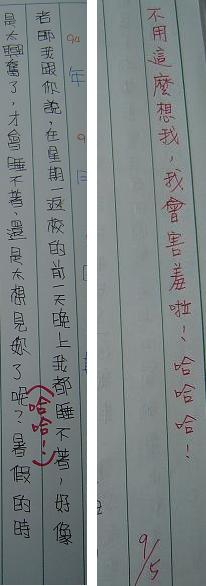 94年9月
老師我跟你說,在星期一返校的前一天晚上我都睡不著,好像
是太興奮了,才會睡不著,還是太想見妳了呢?暑假的時
(哈哈!)
不用這麼想我,我會害羞啦!哈哈哈!
9/5